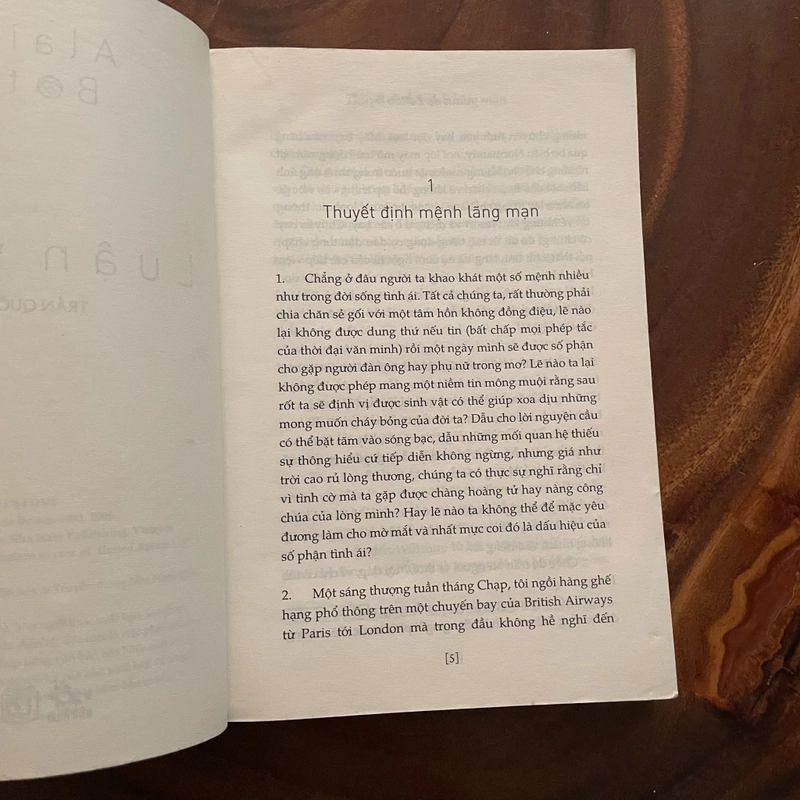 1
Thuyết định mệnh lãng mạn
1. Chẳng ở đâu người ta khao khát một số mệnh nhiều
như trong đời sống tình ái. Tất cả chúng ta, rất thường phải
chia chăn sẻ gối với một tâm hồn không đồng điệu, lẽ nào
lại không được dung thứ nếu tin (bất chấp mọi phép tắc
của thời đại văn minh) rồi một ngày mình sẽ được số phận
cho gặp người đàn ông hay phụ nữ trong mơ? Lẽ nào ta lại
không được phép mang một niềm tin mông muội rằng sau
rốt ta sẽ định vị được sinh vật có thể giúp xoa dịu những
mong muốn cháy bỏng của đời ta? Dẫu cho lời nguyện cầu
có thể bặt tăm vào sóng bạc, dẫu những mối quan hệ thiếu
sự thông hiểu cứ tiếp diễn không ngừng, nhưng giá như
trời cao rủ lòng thương, chúng ta có thực sự nghĩ rằng chỉ
vì tình cờ mà ta gặp được chàng hoàng tử hay nàng công
chúa của lòng mình? Hay lẽ nào ta không thể để mặc yêu
đương làm cho mờ mắt và nhất mực coi đó là dấu hiệu của
số phận tình ái?
2. Một sáng thượng tuần tháng Chạp, tôi ngồi hàng ghế
hạng phổ thông trên một chuyến bay của British Airways
từ Paris tới London mà trong đầu không hề nghĩ đến
[5]